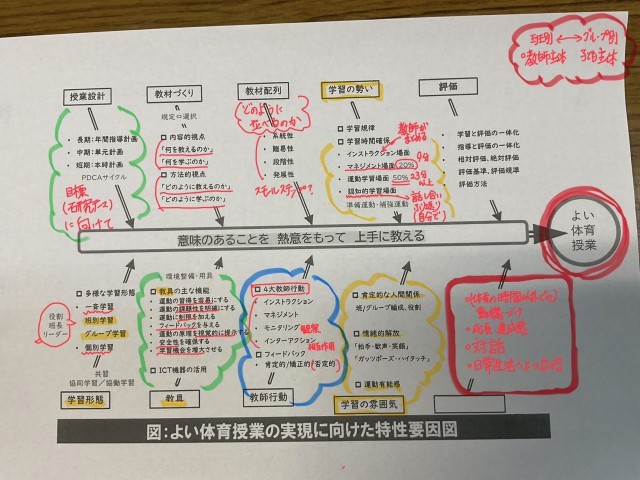 班別 ⟷ グループ別
○教師主体 子ども主体
授業設計
・長期:年間指導計画
・中期:単元計画
・短期:本時計画
PDCAサイクル
目標
に向けて
教材づくり
規定⇔選択
□ 内容的視点
「何を教えるのか」
「何を学ぶのか」
□ 方法的視点
「どのように教えるのか」
「どのように学ぶのか」
教材配列
どのように
並べるのか
・系統性
・難易性
・段階性
・発展性
スモールステップ?
学習の勢い
□ 学習規律
□ 学習時間確保
・インストラクション場面
・マネジメント場面 20%
・運動学習場面 50%
・認知的学習場面
準備運動・補強運動
教師が
まとめる
評価
・学習と評価の一体化
・指導と評価の一体化
・相対評価、絶対評価
・評価基準、評価規準
・評価方法
意味のあることを 熱意をもって 上手に教える
よい
体育
授業
□ 多様な学習形態
・一斉学習
・班別学習
・グループ学習
・個別学習
共習
協同学習/協働学習
役割
班長
リーダー
学習形態
環境整備・用具
□ 教具の主な機能
・運動の習得を容易にする
・運動の課題性を明確にする
・運動に制限を加える
・フィードバックを与える
・運動の原理を視覚的に提示する
・安全性を確保する
・学習機会を増大させる
□ ICT機器の活用
教具
□ 4大教師行動
・インストラクション
・マネジメント
・モニタリング 観察
・インターアクション 相互作用
□ フィードバック
・肯定的/矯正的(否定的)
教師行動
□ 肯定的な人間関係
班/グループ編成、役割
□ 情緒的解放
「拍手・歓声・笑顔」
「ガッツポーズ・ハイタッチ」
□ 運動有能感
学習の雰囲気
・対話
図:よい体育授業の実現に向けた特性要因図